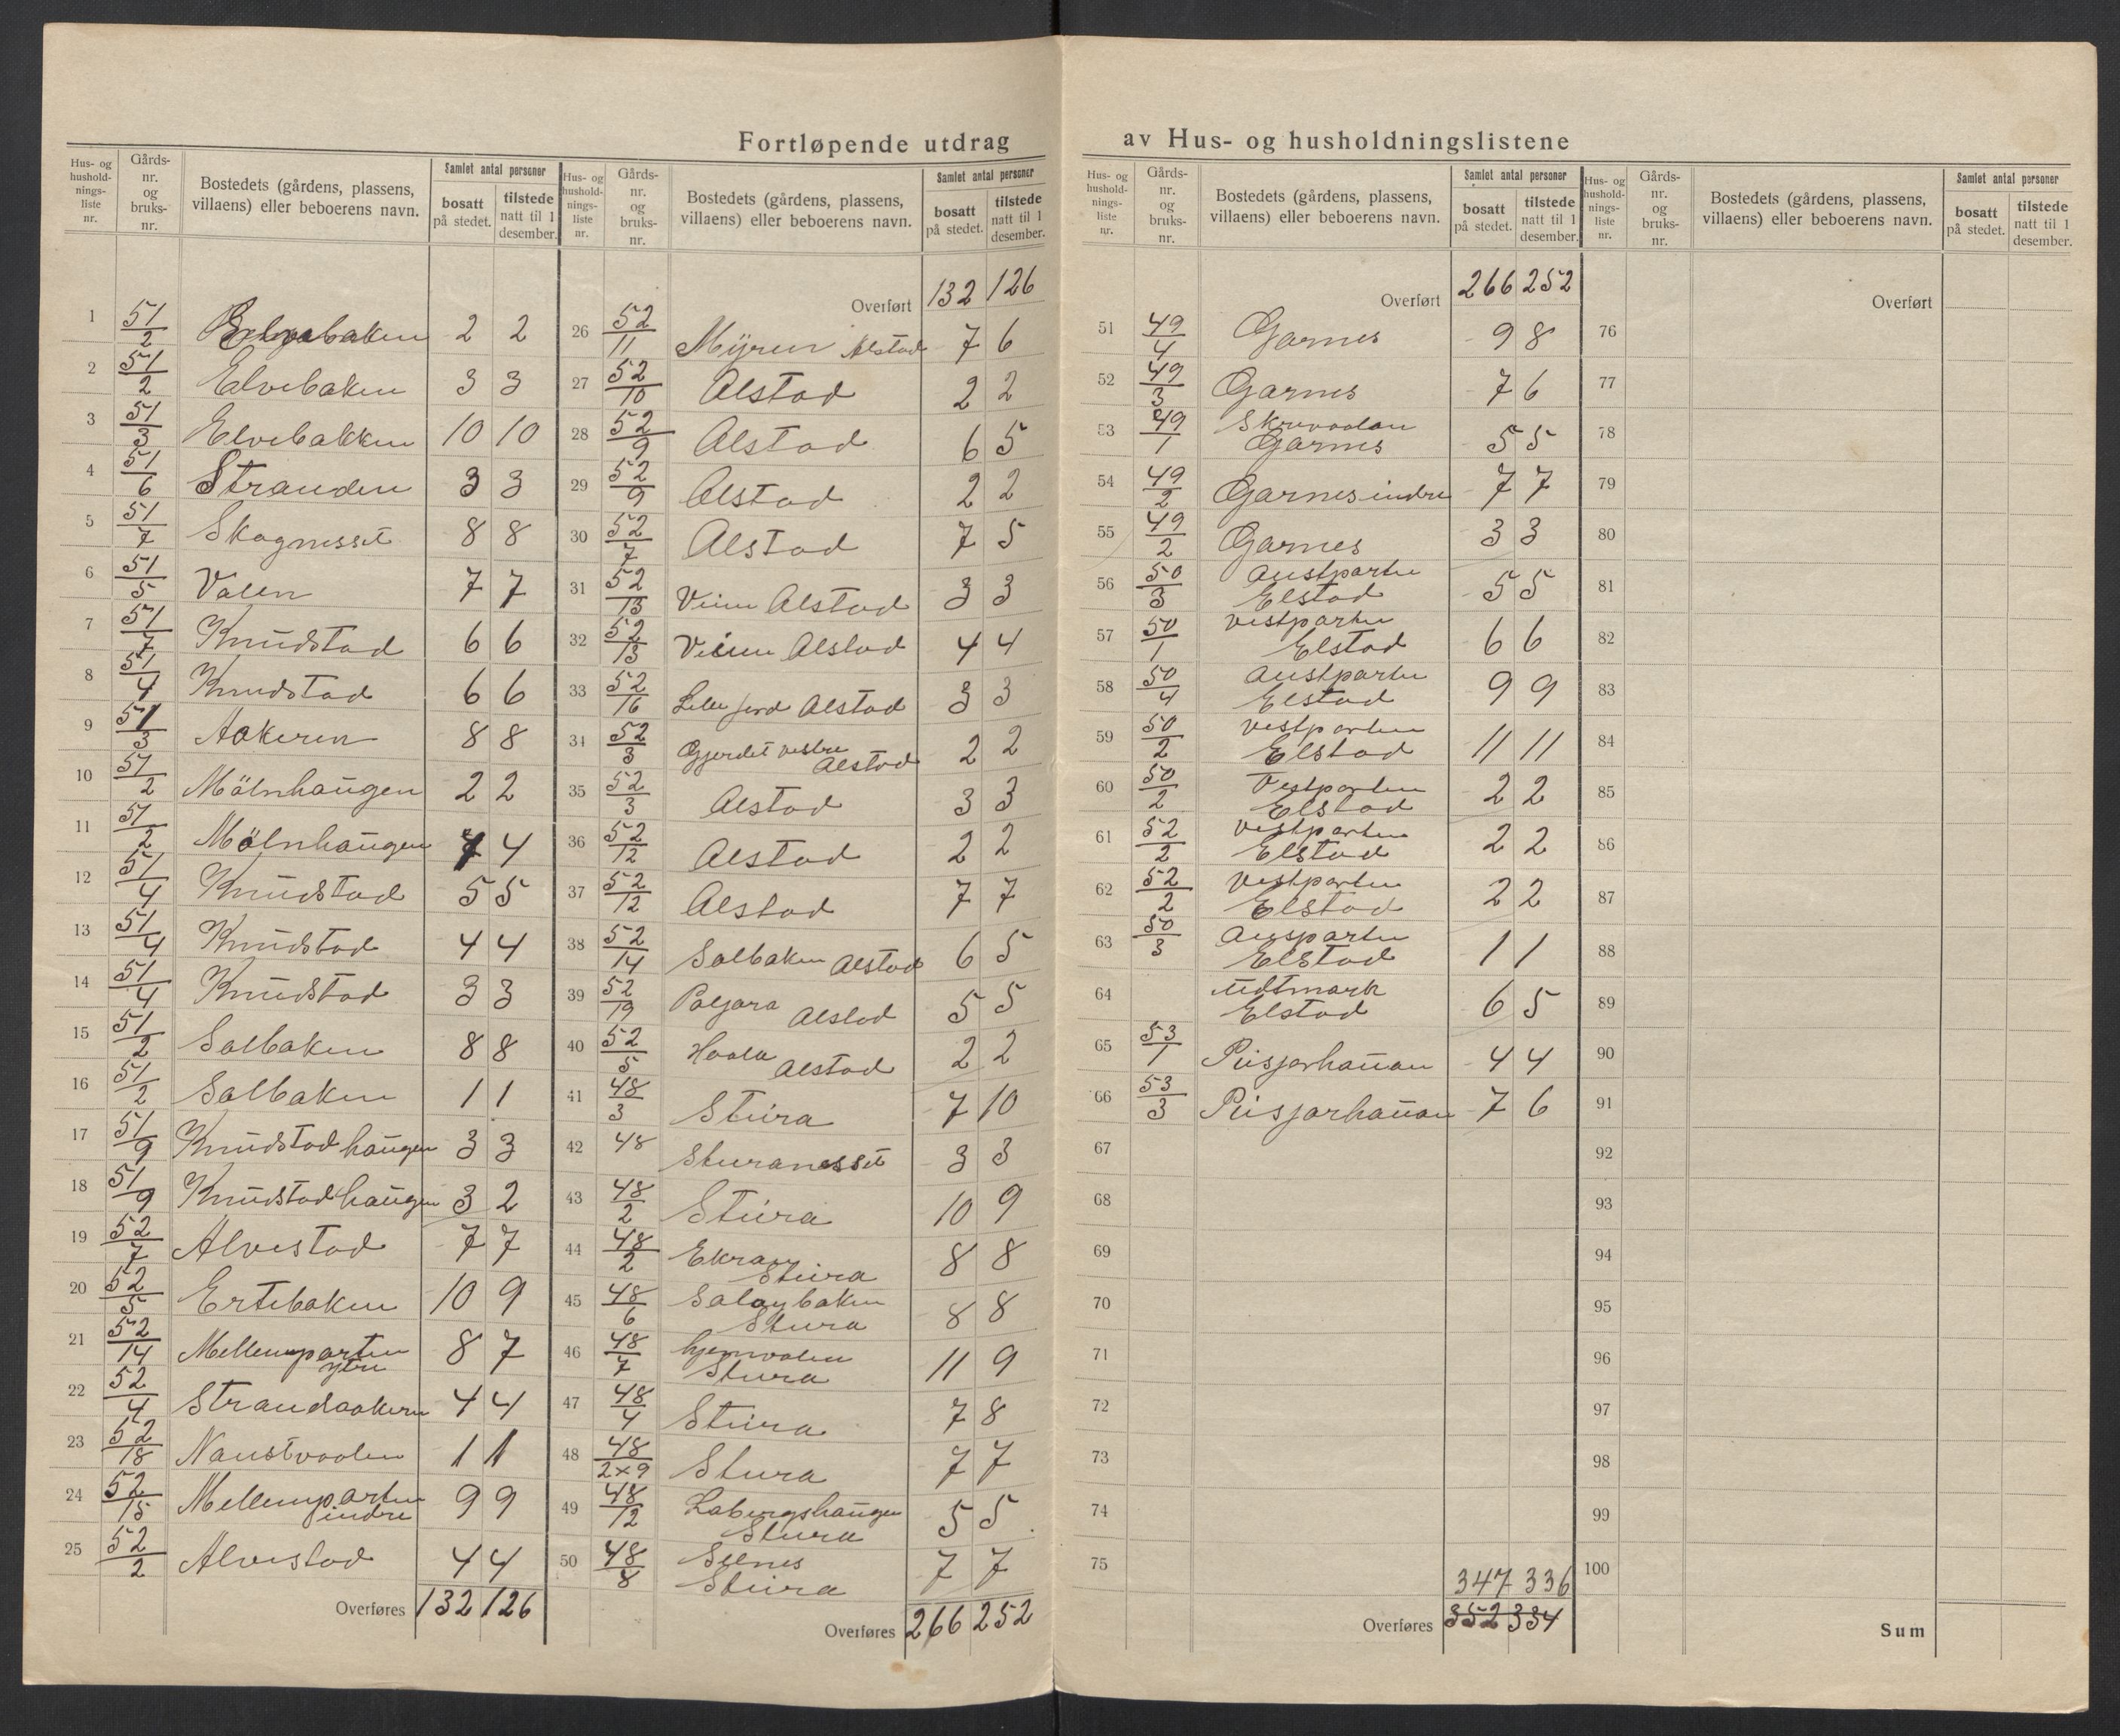 Fortløpende utdrag av Hus- og husholdningslistene
Hus- og hushold-nings-liste nr. | Gårds-nr. og bruks-nr. | Bostedets (gårdens, plassens, villaens) eller beboerens navn. | Samlet antal personer | bosatt på stedet. | tilstede natt til 1 desember.
1 51/2 Elvebakken 2 2
2 51/2 Elvebaken 3 3
3 51/3 Elvebakken 10 10
4 51/6 Stranden 3 3
5 51/7 Skognesset 8 8
6 51/5 Valen 7 7
7 51/7 Knudstad 6 6
8 51/4 Knudstad 6 6
9 51/3 Aakeren 8 8
10 51/2 Mölnhaugen 2 2
11 51/2 Mölnhaugen 4 4
12 51/4 Knudstad 5 5
13 51/4 Knudstad 4 4
14 51/4 Knudstad 3 3
15 51/2 Salbaken 8 8
16 51/2 Salbaken 1 1
17 51/9 Knudstadhaugen 3 3
18 51/9 Knudstadhaugen 3 2
19 52/7 Alvestad 7 7
20 52/5 Ertebaken 10 9
21 52/14 Mellemparten ytre 8 7
22 52/4 Strandaakern 4 4
23 52/18 Naustvoolen 1 1
24 52/15 Mellemparten indre 9 9
25 52/2 Alvestad 4 4
Overføres 132 126
Hus- og hushold-nings-liste nr. | Gårds-nr. og bruks-nr. | Bostedets (gårdens, plassens, villaens) eller beboerens navn. | Samlet antal personer | bosatt på stedet. | tilstede natt til 1 desember.
Overført 132 126
26 52/11 Myren Alstad 7 6
27 52/10 Alstad 2 2
28 52/9 Alstad 6 5
29 52/9 Alstad 2 2
30 52/7 Alstad 7 5
31 52/13 Alstad 3 3
32 52/13 Alstad 4 4
33 52/16 Alstad 3 3
34 52/3 Gjerdet vestre Alstad 2 2
35 52/3 Alstad 3 3
36 52/12 Alstad 2 2
37 52/12 Alstad 7 7
38 52/14 Salbaken Alstad 6 5
39 52/19 Alstad 5 5
40 52/5 Alstad 2 2
41 48/3 Stura 7 10
42 48 Sturanesset 3 3
43 48/2 Stura 10 9
44 48/2 Ekran Stura 8 8
45 48/6 Stura 8 8
46 48/7 Stura 11 9
47 48/4 Stura 7 8
48 48/2×9 Stura 7 7
49 48/12 Labergshaugen Stura 5 5
50 48/8 Selnes Stura 7 7
Overføres 266 252
Hus- og hushold-nings-liste nr. | Gårds-nr. og bruks-nr. | Bostedets (gårdens, plassens, villaens) eller beboerens navn. | Samlet antal personer | bosatt på stedet. | tilstede natt til 1 desember.
Overført 266 252
51 49/4 Garnes 9 8
52 49/3 Garnes 7 6
53 49/1 Garnes 5 5
54 49/2 Garnes indre 7 7
55 49/2 Garnes 3 3
56 50/3 Austparten Elstad 5 5
57 50/1 Vestparten Elstad 6 6
58 50/4 Austparten Elstad 9 9
59 50/2 Vestparten Elstad 11 11
60 50/2 Vestparten Elstad 2 2
61 52/2 Vestparten Elstad 2 2
62 52/2 Vestparten Elstad 2 2
63 50/3 Elstad 1 1
64 Udtmark Elstad 6 5
65 53/1 Pusjarhauan 4 4
66 53/3 Pusjarhauan 7 6
67
68
69
70
71
72
73
74
75
347 336
Overføres 352 334
Hus- og hushold-nings-liste nr. | Gårds-nr. og bruks-nr. | Bostedets (gårdens, plassens, villaens) eller beboerens navn. | Samlet antal personer | bosatt på stedet. | tilstede natt til 1 desember.
Overført
76
77
78
79
80
81
82
83
84
85
86
87
88
89
90
91
92
93
94
95
96
97
98
99
100
Sum